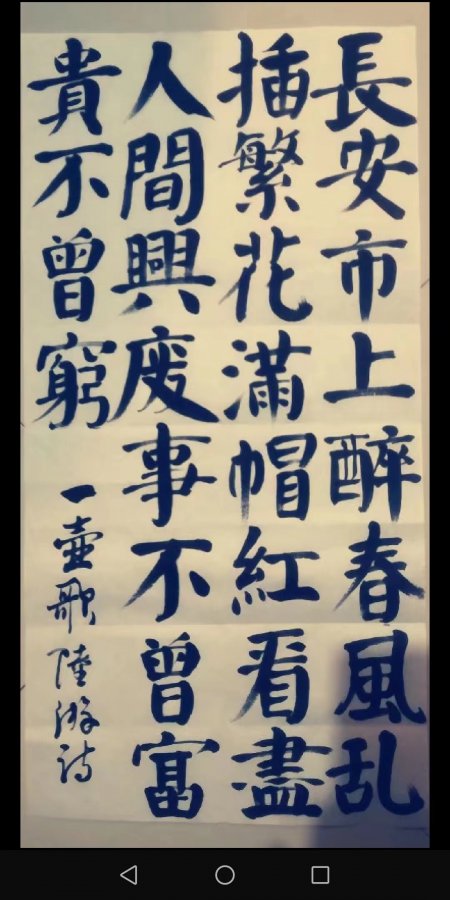 長安市上醉春風乱
插繁花滿帽紅看盡
人間興废事不曾富
貴不曾窮
一壺歌陸游詩